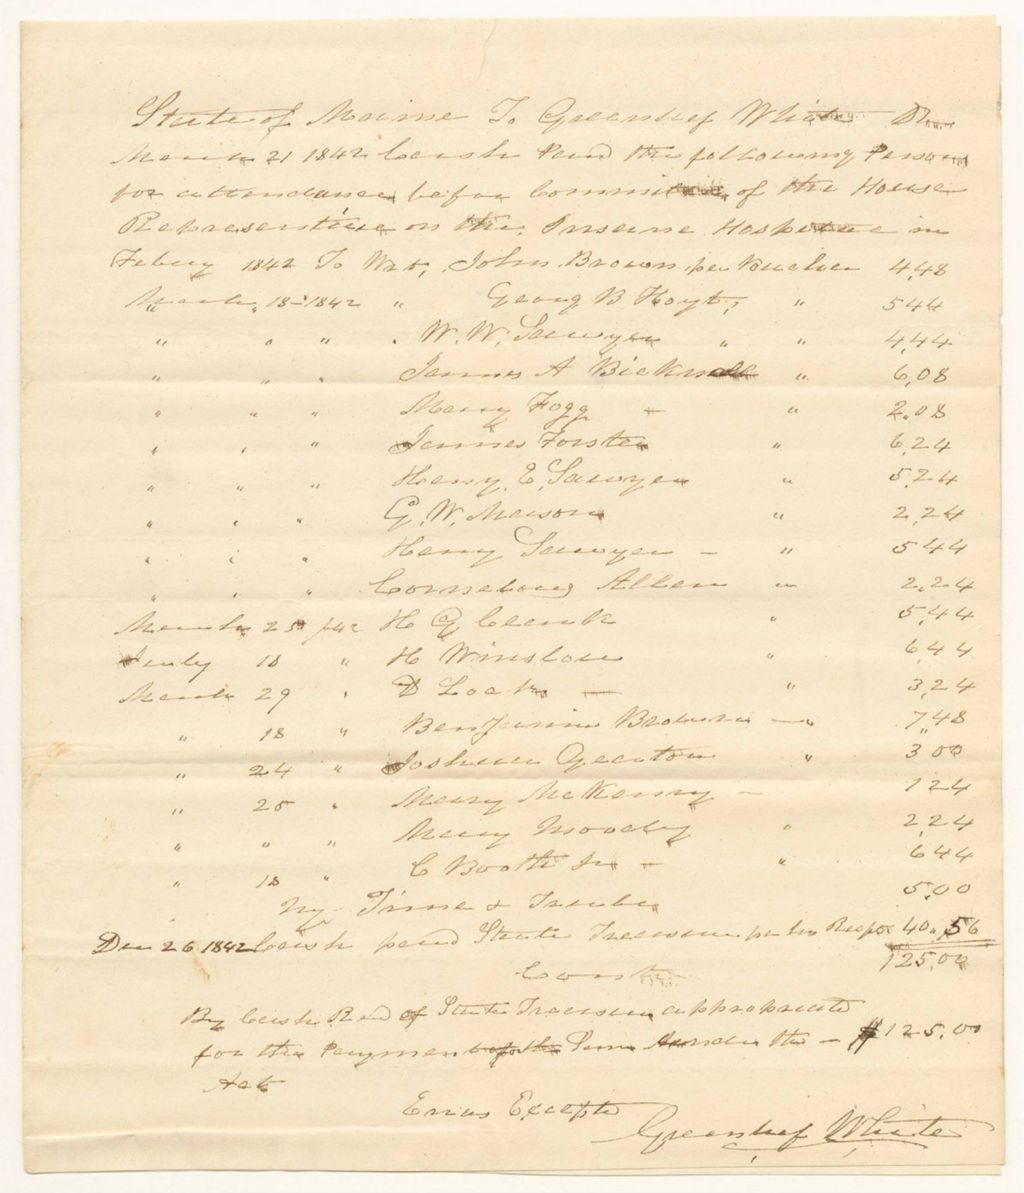 State of Maine To Greenlief White Dr
March 21 1842 Cash Paid the following Persons
for attendance before Committee of the House
Representitive on the Insane Hospital in
Febury 1842 To Wit, John Brown per Voucher 4,48
March " 18-1842 " Georg B Hoyt, " 5 44
" " " W. W. Sawyer " " 4,44
" " " James A Bicknell " 6,08
" " " Mary Fogg - " 2,08
" " " James Forster " 6,24
" " " Henry E, Sawyer " 5,24
" " " G, W, Mason " 2,24
" " " Henry Sawyer - " 5 44
" " " Cornelous Allen " 2,24
March 25 /42 H G Clark " 5,44
18 " H Winslow " 6,44
March 29 " D Lock - " 3,24
" 18 " Benjamin Brown - " 7,48
" 24 " Joshua " 3 00
" 25 " Mary McKenny - 1 24
" " " Mary Moody " 2,24
" 18 " C Booth Jr - " 6 44
My Time & Trouble 5,00
Dec 26 1842 Cash paid State Treasurer per his 40,,56
125,00
By Cash Recd of State Treasurer appropriate
for the Payment of the Same under the - $125,00
Act
Erros Excepted
Greenlief White